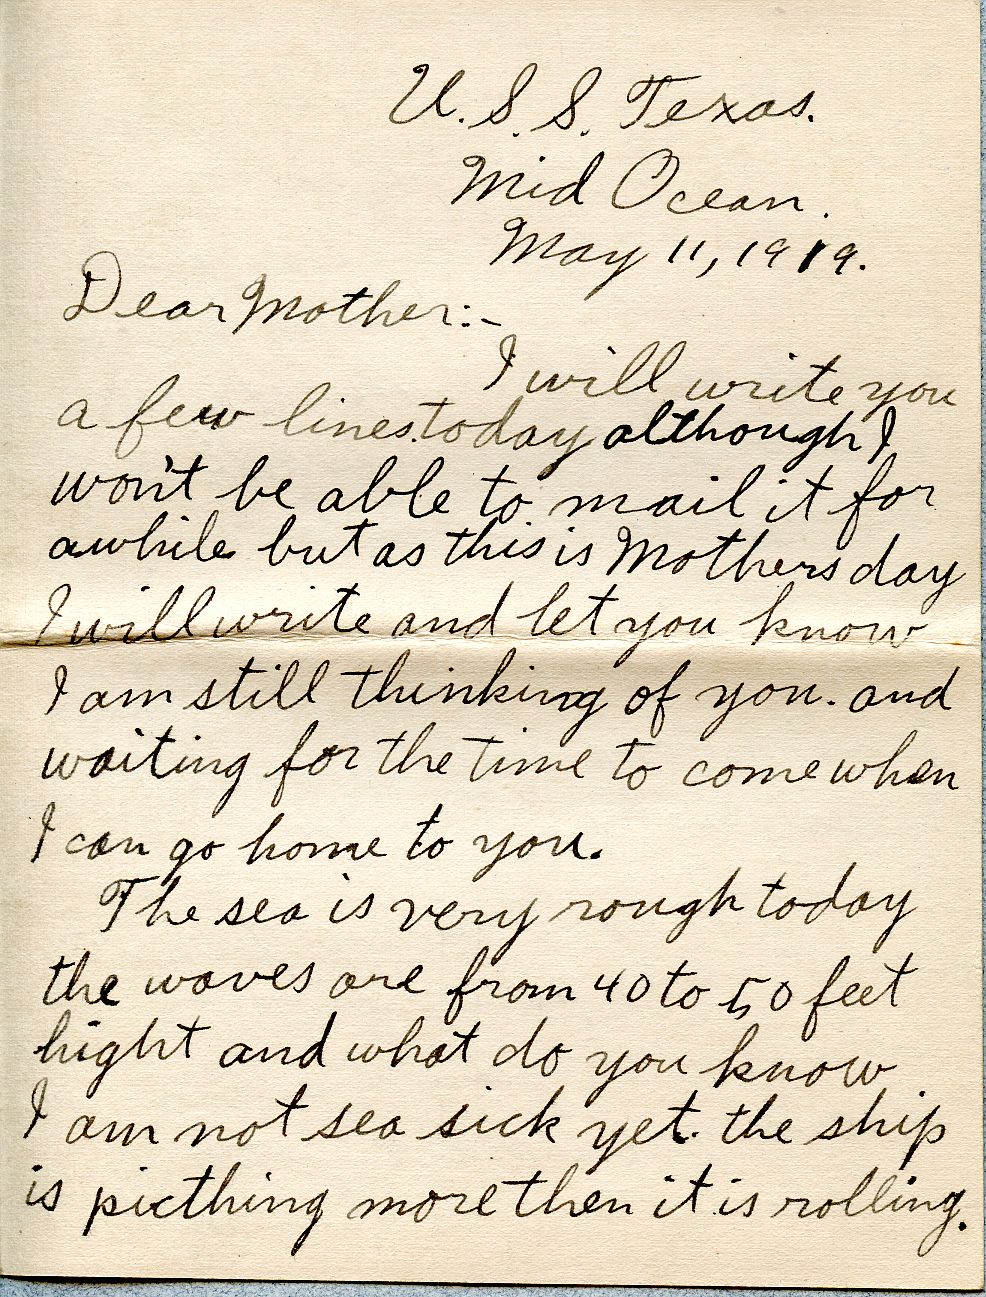 U.S.S. Texas.
Mid Ocean.
May 11, 1919.
Dear Mother:-
I will write you
a few lines today although I
won't be able to mail it for
awhile but as this is Mothers day
I will write and let you know
I am still thinking of you. and
waiting for the time to come when
I can go home to you.
The sea is very rough today
the waves are from 40 to 50 feet
hight and what do you know
I am not sea sick yet. the ship
is picthing more then it is rolling.